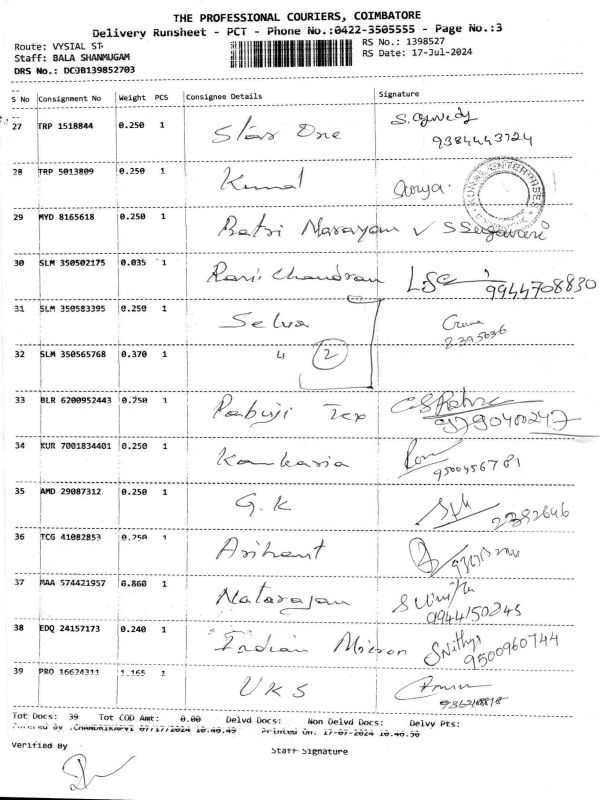 THE PROFESSIONAL COURIERS, COIMBATORE
Delivery Runsheet - PCT - Phone No.:0422-3505555 - Page No.:3
Route: VYSIAL ST
RS No.: 1398527
Staff: BALA SHANMUGAM
RS Date: 17-Jul-2024
DRS No.: DC9B139852703
S No Consignment No Weight PCS Consignee Details Signature
27 TRP 1518844 0.250 1 Star One
9384443724
28 TRP 5013809 0.250 1 Kunal Surya.
KUNAL ENTERPRISES
29 MYD 8165618 0.250 1 Batri Narayan
30 SLM 350502175 0.035 1 9944708830
31 SLM 350583395 0.250 1 Selva
2395636
32 SLM 350565768 0.370 1 " 2
33 BLR 6200952443 0.250 1 Pabuji Tex
9790400247
34 KUR 7001834401 0.250 1 Kankaria
9500456781
35 AMD 29087312 0.250 1 G.K
2392646
36 TCG 41082853 0.250 1 Arihant
37 MAA 574421957 0.860 1 Natarajan
9944150245
38 EDQ 24157173 0.240 1 Indian Micron SNithya
9500960744
39 PRO 16624311 1.165 1 UKS
Tot Docs: 39 Tot COD Amt: 0.00 Delvd Docs: Non Delvd Docs: Delvy Pts:
Entered By :CHANDRIKAPVI 07/17/2024 10.40.49 Printed On: 17-07-2024 10.40.50
Verified By
Staff Signature